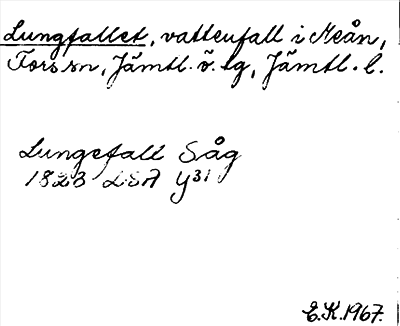 Lungfallet, vattenfall i Meån,
Fors sn, Jämtl. ö. tg, Jämtl. l.
Lungefall Såg
1828 LSA Y31
E.K. 1967.